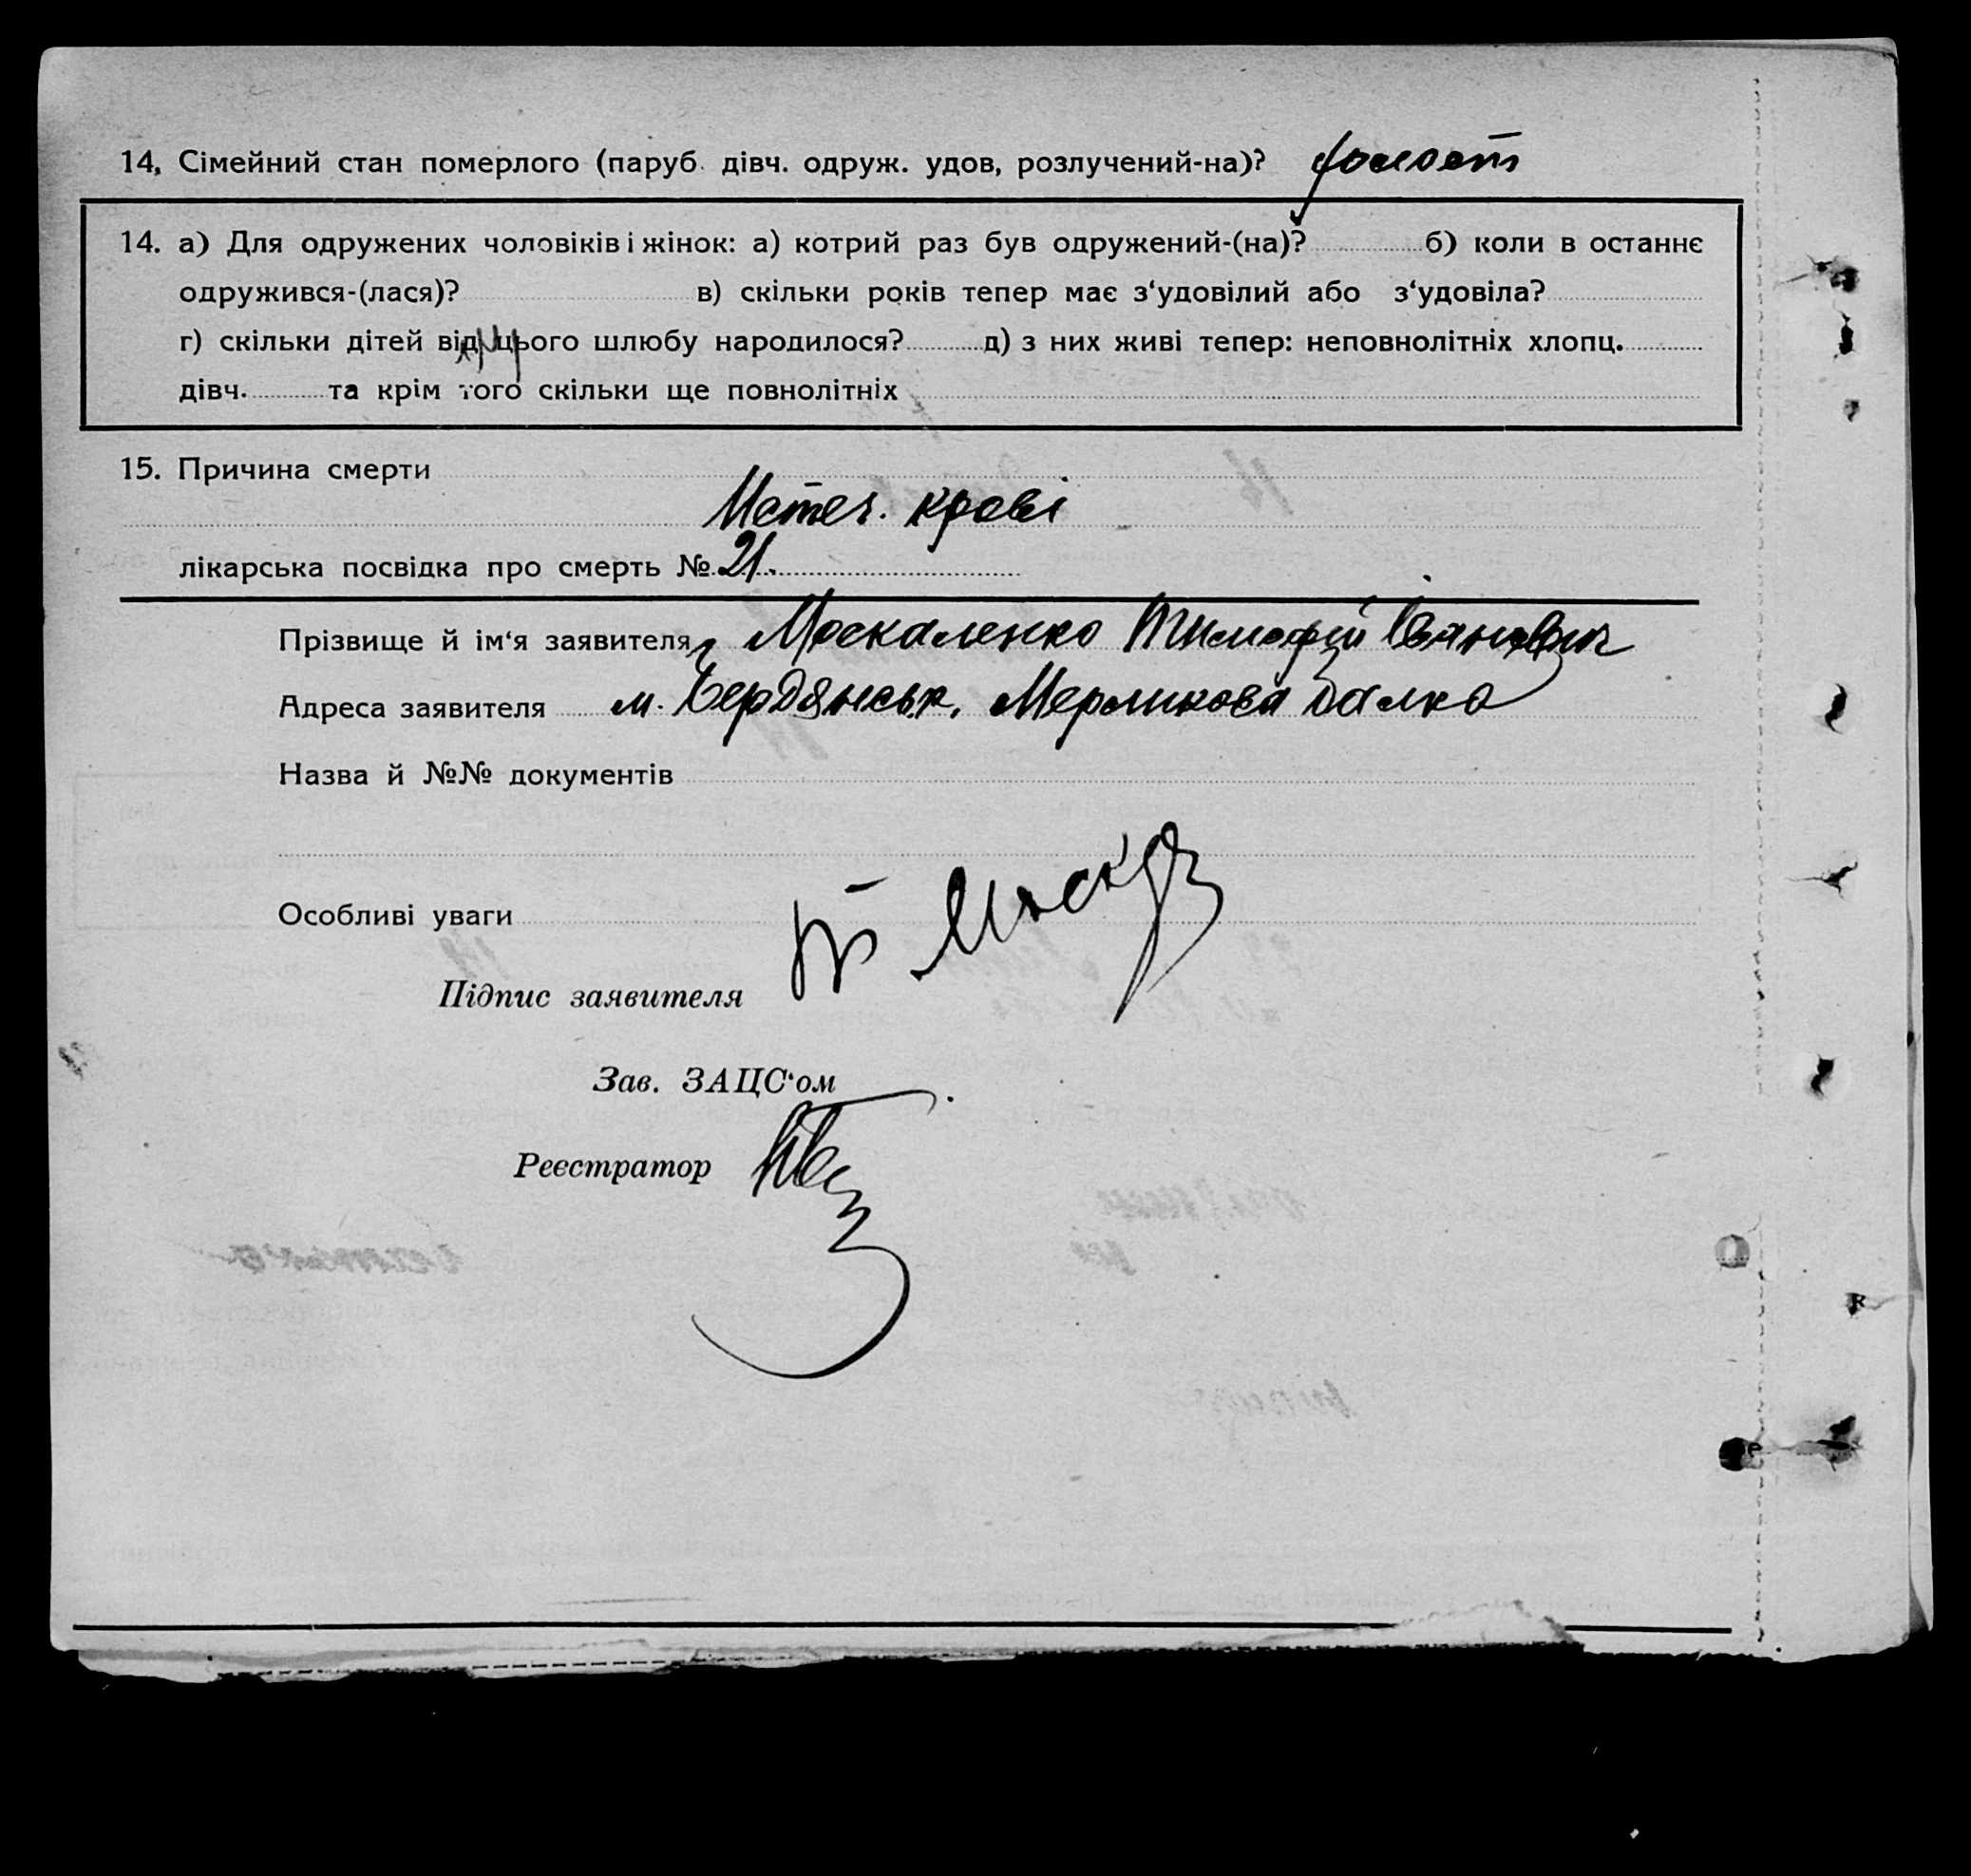 14, Сімейний стан померлого (паруб. дівч. одруж. удов, розлучений-на)? холост
14. а) Для одружених чоловіків і жінок: а) котрий раз був одружений-(на)? б) коли в останнє
одружився-(лася)? в) скільки років тепер має з‘удовілий або з‘удовіла?
г) скільки дітей від цього шлюбу народилося? д) з них живі тепер: неповнолітніх хлопц.
дівч. та крім того скільки ще повнолітніх
15. Причина смерти
Истеч. крові
лікарська посвідка про смерть № 21.
Прізвище й ім‘я заявителя Москаленко Тимофій Іванович
Адреса заявителя м. Бердянськ, Мерликова балка
Назва й №№ документів
Особливі уваги
Підпис заявителя Т Моск
Зав. ЗАЦС‘ом
Реєстратор